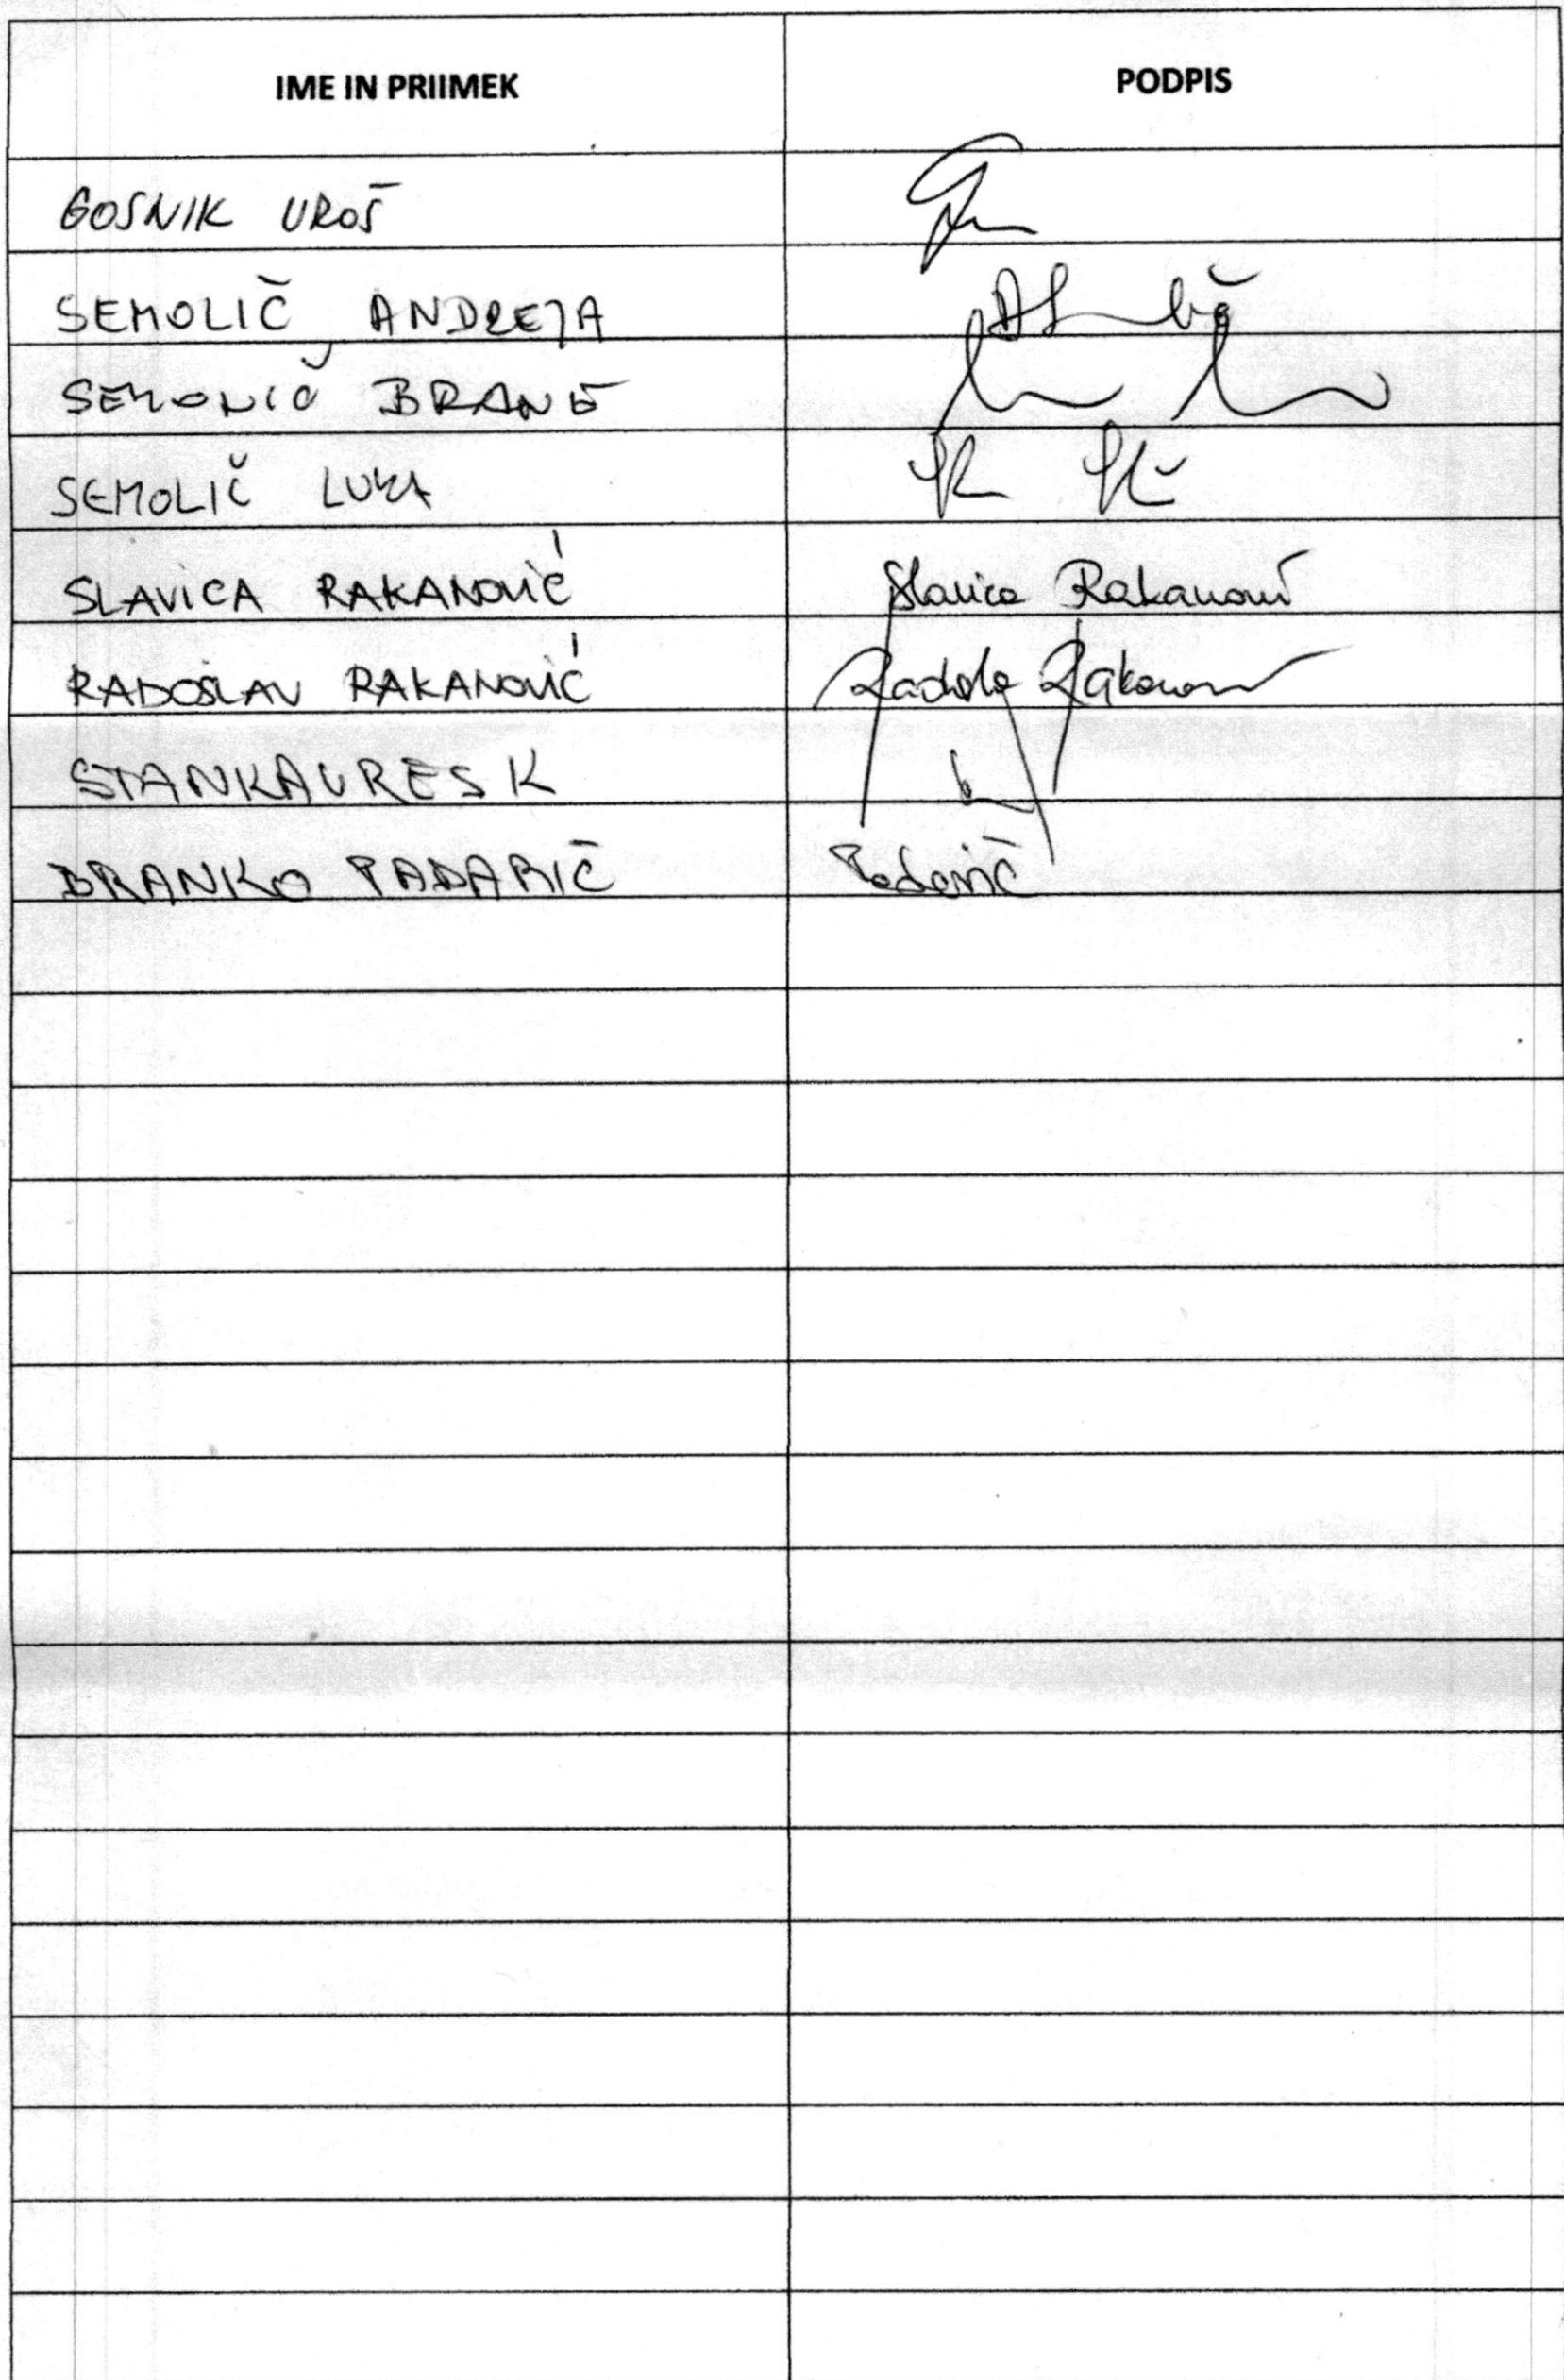 IME IN PRIIMEK PODPIS
GOSNIK UROŠ
SEMOLIČ ANDREJA
SEMOLIČ BRANE
SEMOLIČ LUKA
SLAVICA RAKANOVIĆ Slavica Rakanović
RADOSLAV RAKANOVIĆ
STANKA URESK
BRANKO PADARIČ Padarič